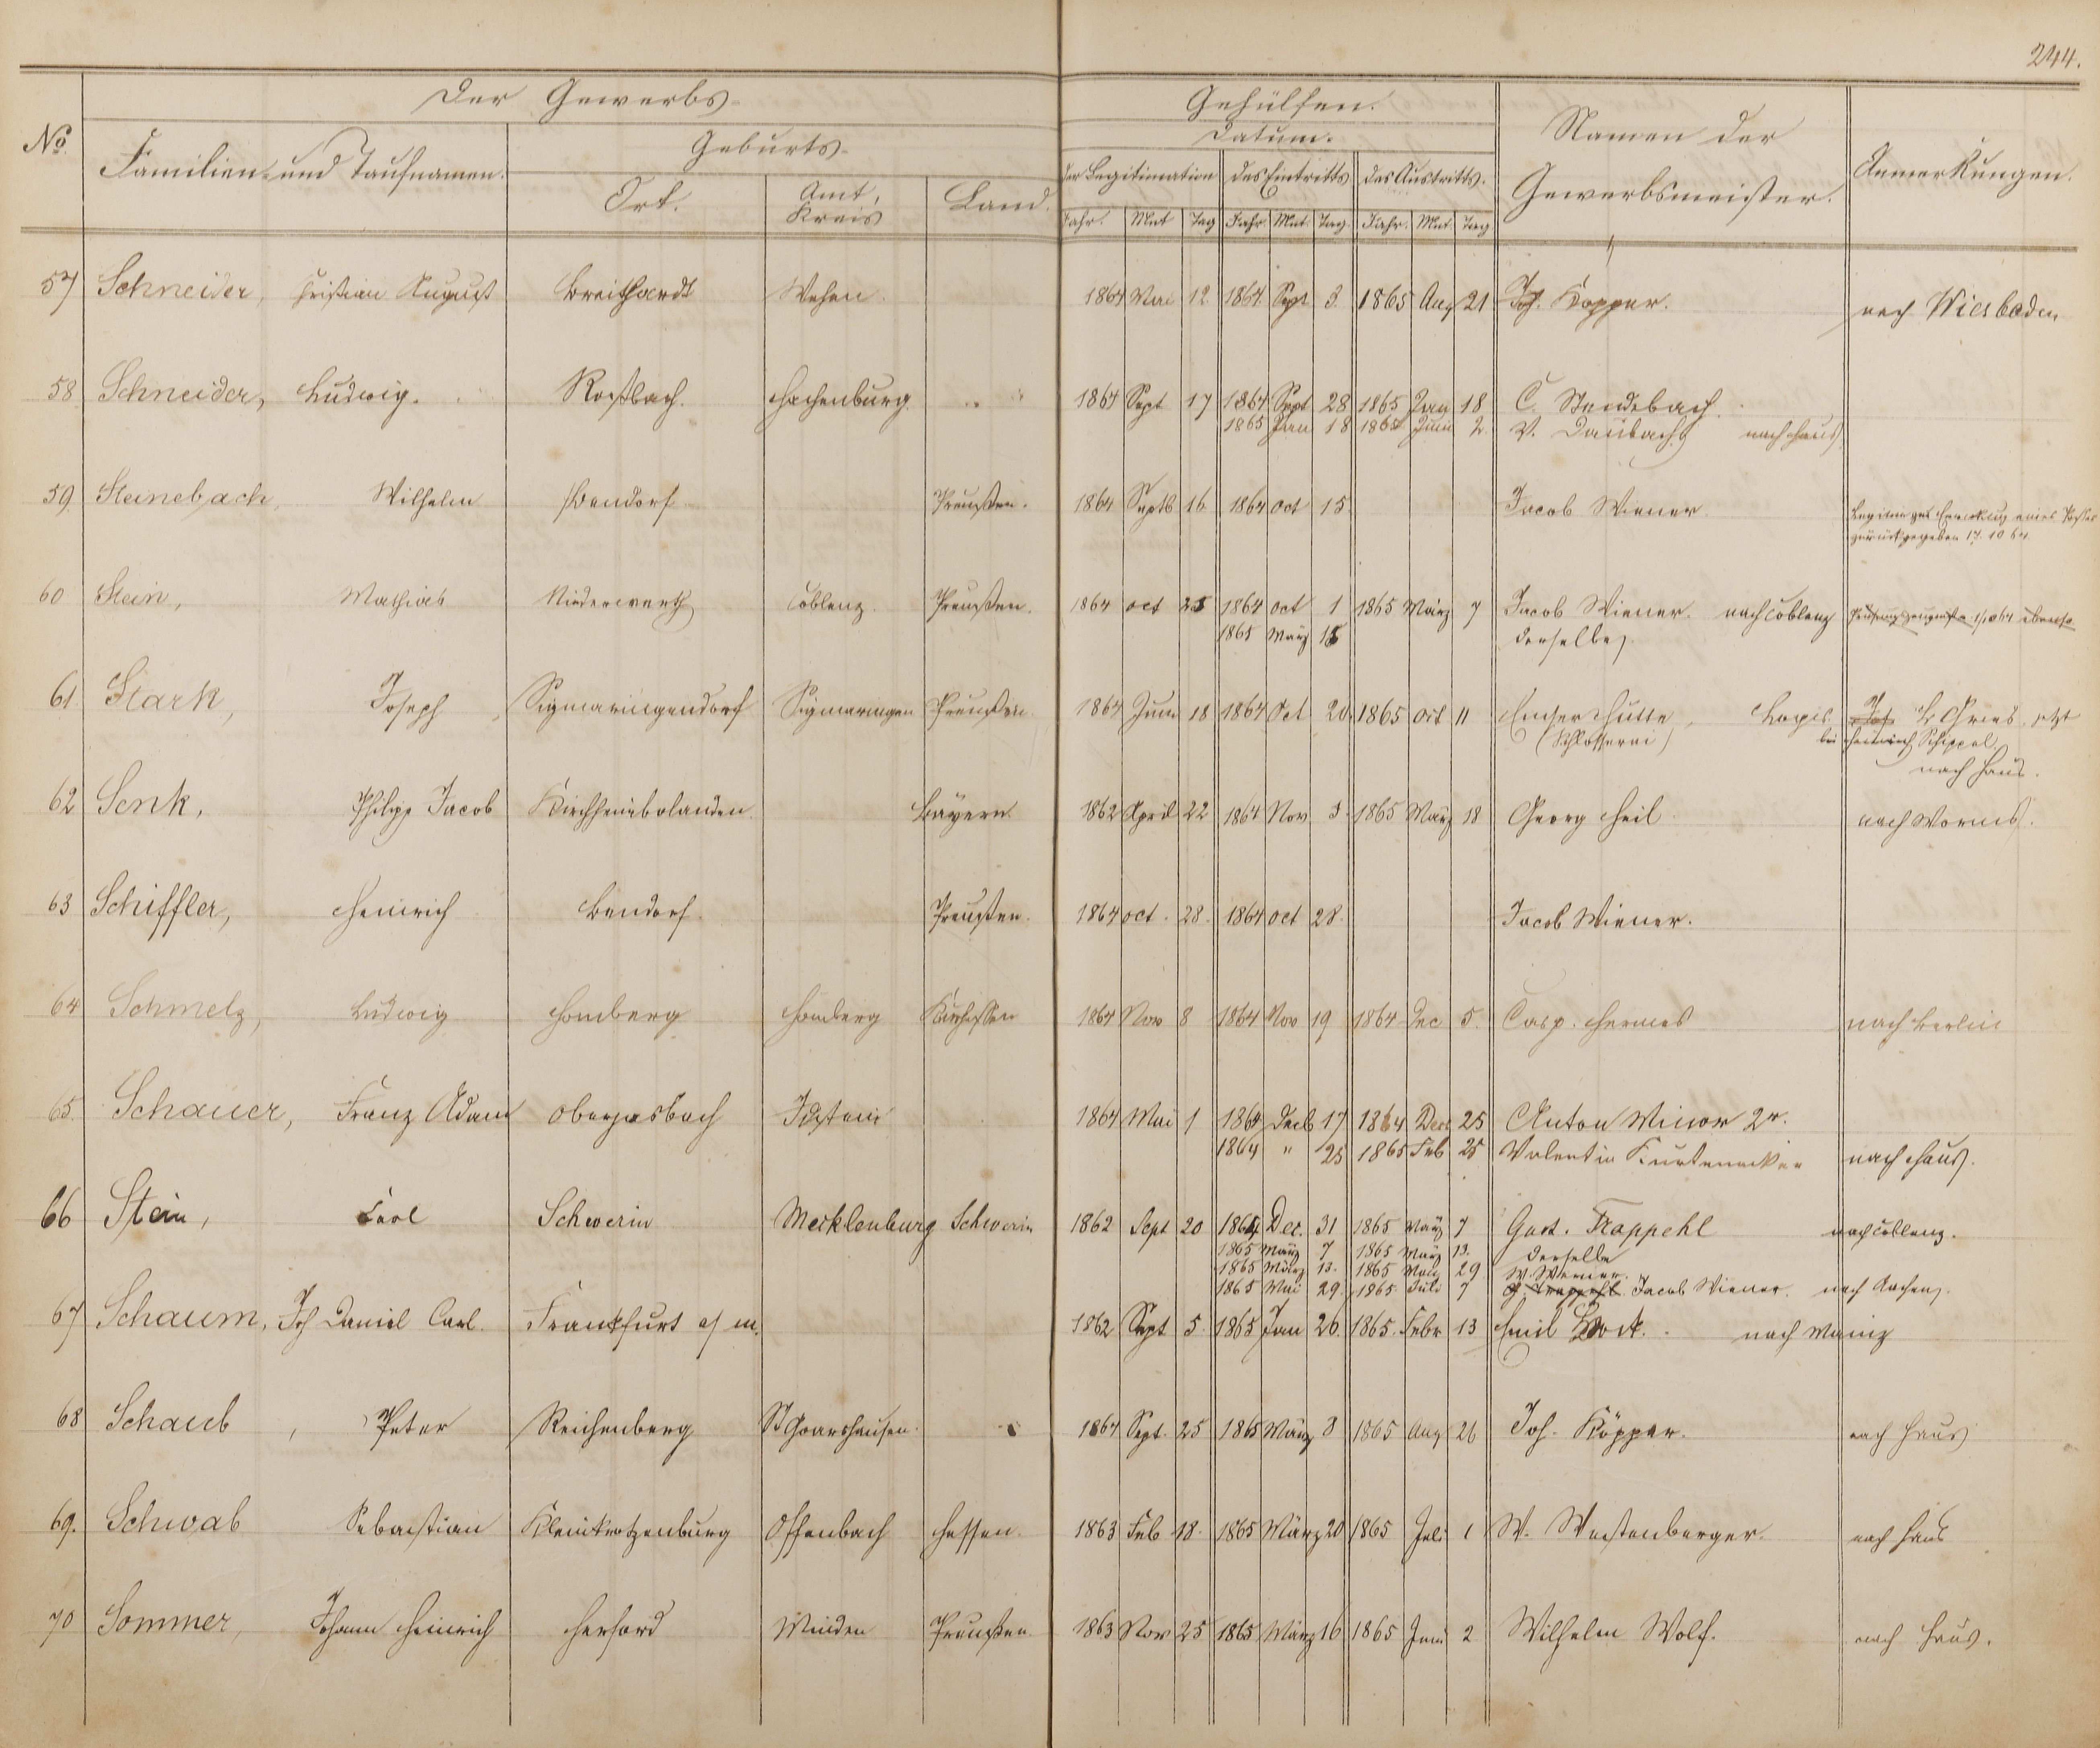 244.
Der Gewerbs-
Gehülfen.
No
Familien- und Taufnamen.
Geburts-
Datum.
Namen der
Gewerbsmeister.
Anmerkungen.
Ort.
Amt,
Kreis
Land.
der Legitimation
des Eintritts
des Austritts.
Jahr. Mnt Tag Jahr. Mnt. Tag. Jahr. Mnt. Tag
57 Schneider, Christian August Breithardt Wehen. 1864 Mai 12 1864 Sept 3. 1865 Aug 21 Joh. Köpper. nach Wiesbaden
58 Schneider, Ludwig. Roßbach. Hachenburg. 1864 Sept 17 1864 Sept 28 1865 Jan 18 C. Stendebach.
1865 Jan 18 1865 Juni 2. V. Daubach nach Haus
59 Steinebach, Wilhelm Bendorf Preußen. 1864 Septb 16 1864 oct 15 Jacob Wiener.
zurückgegeben 17. 10 64.
60 Stein, Mathias Niederwerth Coblenz. Preußen. 1864 oct 25 1864 oct 1 1865 März 7 Jacob Wiener. nach Coblenz ebenso
1865 März 15 derselbe.
61. Stark, Joseph Sigmaringendorf Sigmaringen Preußen. 1864 Juni 18 1864 Oct 20 1865 Oct 11 Emser Hütte, Logis. jetzt
(Schlosserei) bei Heinrich Schippel.
nach Haus.
62 Senk, Philipp Jacob Kirchheimbolanden Bayern. 1862 April 22 1864 Nov 3. 1865 März 18 Georg Heil nach Worms.
63 Schiffler, Heinrich Bendorf. Preußen. 1864 oct. 28. 1864 oct 28. Jacob Wiener.
64 Schmelz, Ludwig Homberg Homberg Kurhessen 1864 Nov 8 1864 Nov 19 1864 Dec 5. Casp. Hermes nach Berlin
65. Schauer, Franz Adam Oberjosbach Idstein 1864 Mai 1 1864 Decb 17 1864 Dec 25 Anton Minor 2r.
1864 " 25 1865 Feb 25 Valentin Kurtenacker nach Haus.
66 Stein, Carl Schwerin Mecklenburg Schwerin 1862 Sept 20 1864 Dec. 31 1865 März 7 Gust. Trappehl nach Coblenz.
1865 März 7 1865 März 13. derselbe
1865 März 13. 1865 Mai 29 W. Werner.
1865 Mai 29. 1865 Juli 7 G. Trappehl Jacob Wiener. nach Aachen.
67 Schaum, Joh Daniel Carl. Frankfurt a/ m. 1862 Sept 5. 1865 Jan 26. 1865. Febr 13 Emil Bock. nach Mainz
68 Schaub, Peter Reichenberg St Goarshausen. 1864 Sept. 25 1865 März 3 1865 Aug 26 Joh. Köpper. nach Haus
69. Schwab Sebastian Kleinkrotzenburg Offenbach Hessen. 1863 Feb 18. 1865 März 20 1865 Juli 1 W. Westenberger. nach Haus
70 Sommer, Johann Heinrich Herford Minden Preußen 1863 Nov 25 1865 März 16 1865 Juni 2 Wilhelm Wolf. nach Haus.